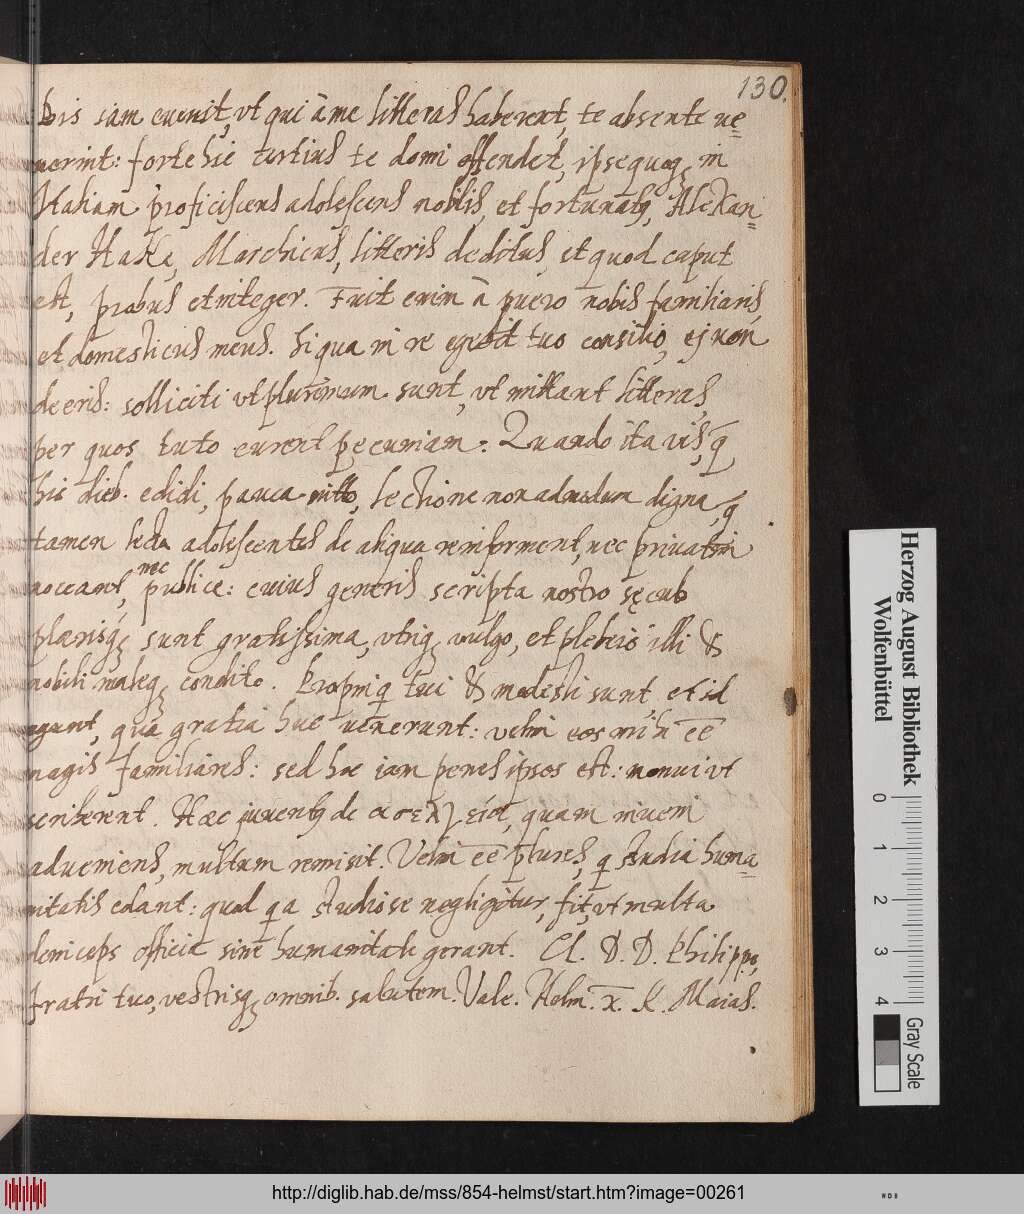 130.
Bis iam euenit, vt qui à me litteras haberent, te absente ue=
nerint: forte hic tertius te domi offendet, ipse quoq; in
Italiam proficiscens adolescens nobilis, et fortunatq, Alexan=
der Hakę, Marchicus, litteris deditus, et quod caput
est, probus et integer. Fuit enim à puero nobis familiaris,
et domesticus meus. Si qua in re egebit tuo consilio, ej non
deeris: solliciti vt plurimum sunt, vt mittant litteras,
per quos tuto curent pecuniam. Quando ita vis, q̄
hic dieb. edidi, pauca mitto, lectione non admodum digna, q
tamen lecta adolescentes de aliqua re informent, nec priuatim
noceant, nec publice: cuius generis scripta nostro sęculo
plærisq; sunt gratissima, vtriq; vulgo, et plebeio illi &
nobili maleq; condito. Propinq̨ tui & modesti sunt, et id
agunt, qua gratia huc venerunt: velim eos mihi ēē
magis familiares: sed hoc iam penes ipsos est: monui vt
scriberent. Hæc juventq de ασελγείᾳ, quam inueni
adueniens, multum remisit. Velim ēē plures, q studia huma=
nitatis colant: quod qa studiose negligitur, fit, vt multa
deinceps officia sine humanitate gerant. Cl. D. D. Philippo,
fratri tuo, vestrisq; omnib. salutem. Vale. Helm. x. K. Maias.
Herzog August Bibliothek
Wolfenbüttel
0 1 2 3 4
Gray Scale
http://diglib.hab.de/mss/854-helmst/start.htm?image=00261